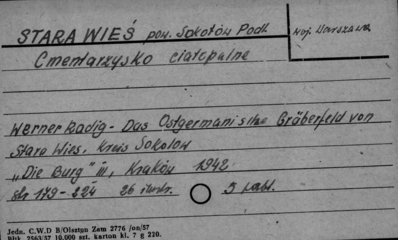 STARA WIEŚ pow. Sokołów Podl.
Woj. Warszawa
Cmentarzysko ciałopalne
Werner Radig - Das Ostgermanische Gräberfeld von
Stara Wies, Kreis Sokolow
"Die Burg" III, Kraków 1942
str 179-224 26 ilustr. 5 tabl.
Jedn. C.W.D B/Olsztyn Zam 2776 /on/57
Blok. 2563/57 10.000 szt. karton kl. 7 g 220.